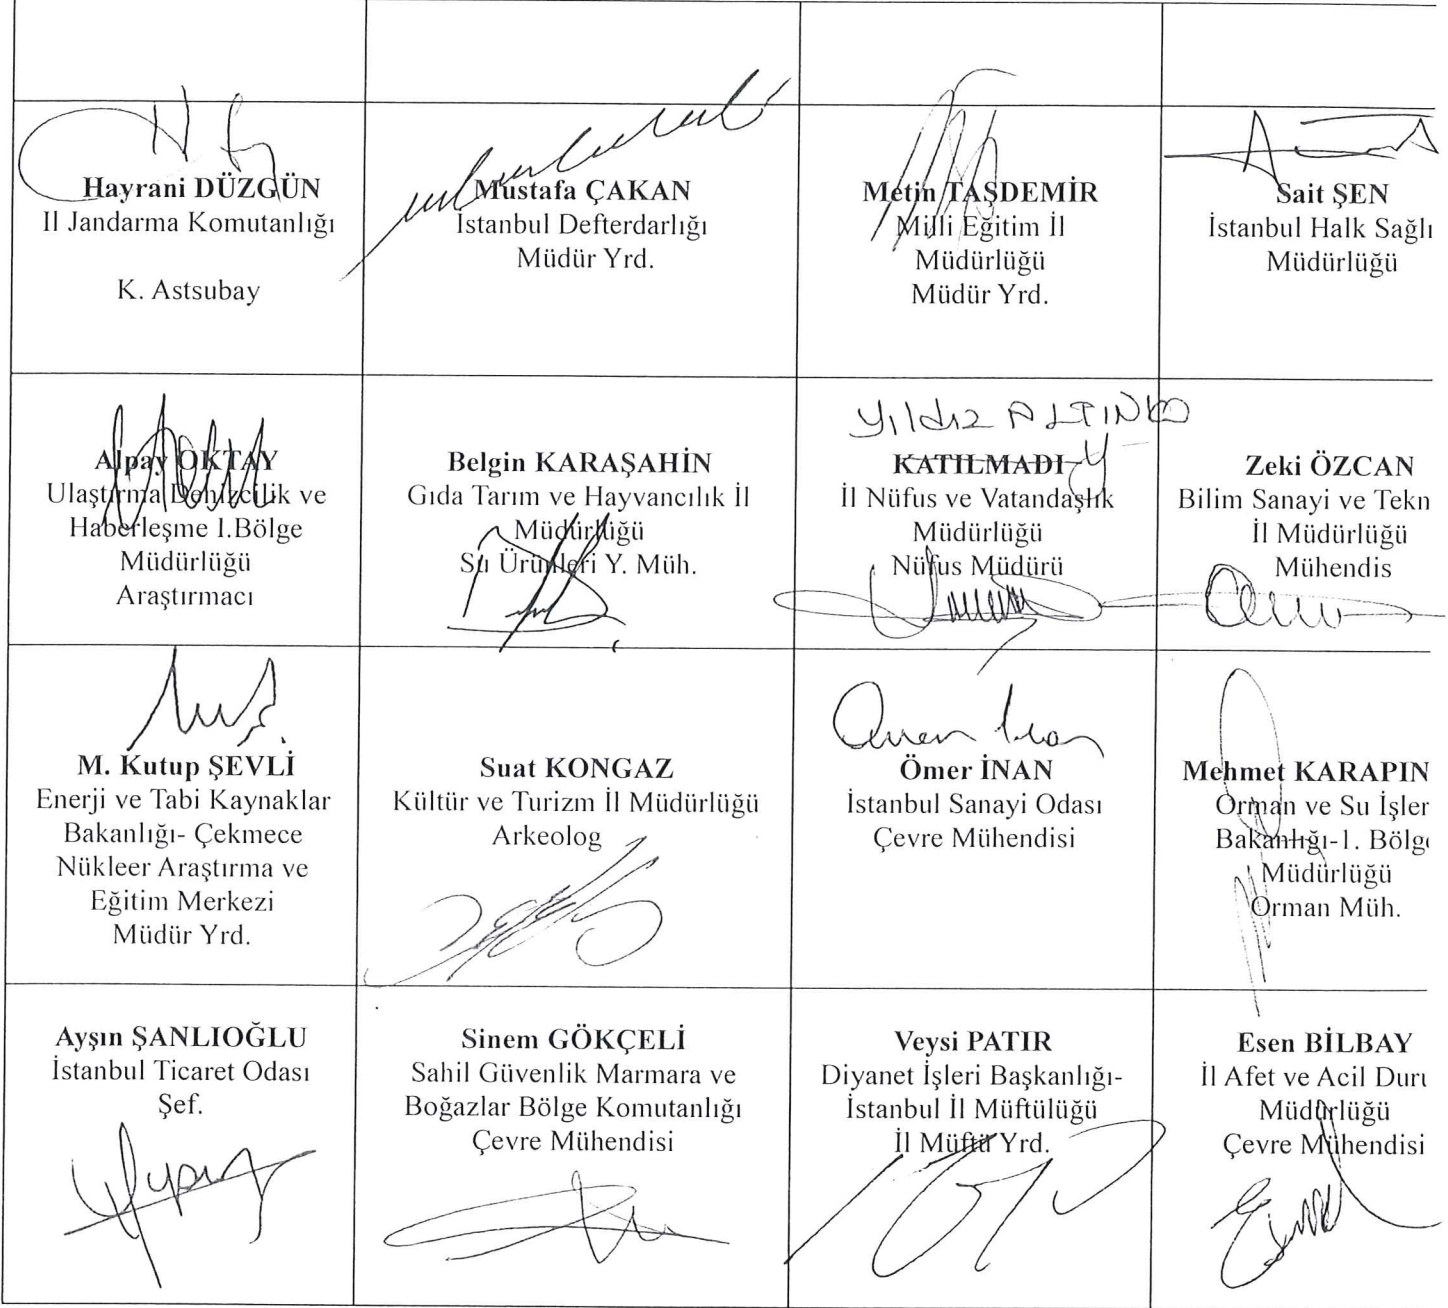 Hayrani DÜZGÜN
Il Jandarma Komutanlığı
K. Astsubay
Mustafa ÇAKAN
İstanbul Defterdarlığı
Müdür Yrd.
Metin TAŞDEMİR
Milli Eğitim İl
Müdürlüğü
Müdür Yrd.
Sait ŞEN
İstanbul Halk Sağlı
Müdürlüğü
Alpay OKTAY
Ulaştırma Denizcilik ve
Haberleşme 1.Bölge
Müdürlüğü
Araştırmacı
Belgin KARAŞAHİN
Gıda Tarım ve Hayvancılık İl
Müdürlüğü
Su Ürünleri Y. Müh.
Yıldız
KATILMADI
İl Nüfus ve Vatandaşlık
Müdürlüğü
Nüfus Müdürü
Zeki ÖZCAN
Bilim Sanayi ve Tekn
İl Müdürlüğü
Mühendis
M. Kutup ŞEVLİ
Enerji ve Tabi Kaynaklar
Bakanlığı- Çekmece
Nükleer Araştırma ve
Eğitim Merkezi
Müdür Yrd.
Suat KONGAZ
Kültür ve Turizm İl Müdürlüğü
Arkeolog
Ömer İnan
Ömer İNAN
İstanbul Sanayi Odası
Çevre Mühendisi
Mehmet KARAPIN
Orman ve Su İşler
Bakanlığı-1. Bölge
Müdürlüğü
Orman Müh.
Ayşın ŞANLIOĞLU
İstanbul Ticaret Odası
Şef.
Sinem GÖKÇELİ
Sahil Güvenlik Marmara ve
Boğazlar Bölge Komutanlığı
Çevre Mühendisi
Veysi PATIR
Diyanet İşleri Başkanlığı-
İstanbul İl Müftülüğü
İl Müftü Yrd.
Esen BİLBAY
İl Afet ve Acil Duru
Müdürlüğü
Çevre Mühendisi